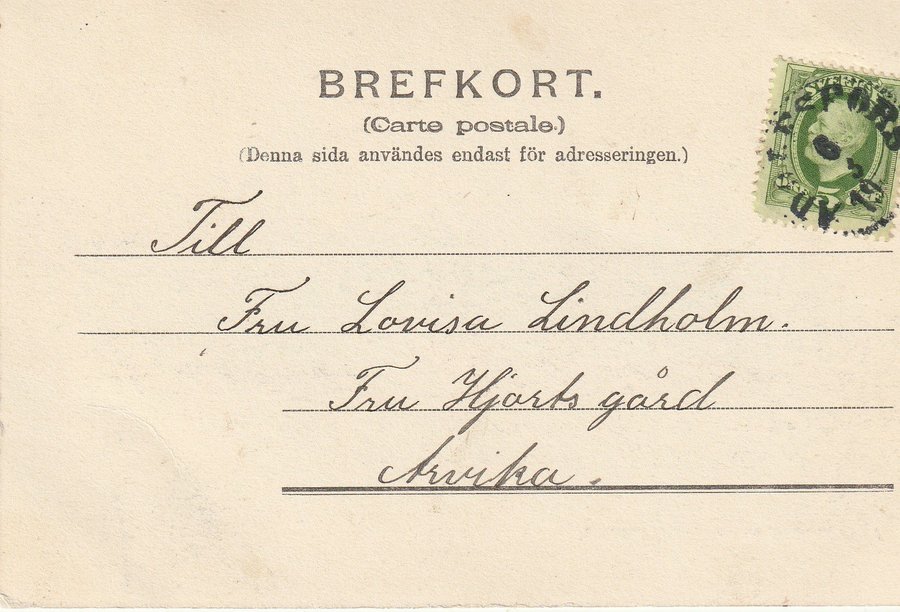 BREFKORT.
(Carte postale.)
(Denna sida användes endast för adresseringen.)
SVERIGE
Till
Fru Lovisa Lindholm.
Fru Hjorts gård
Arvika.